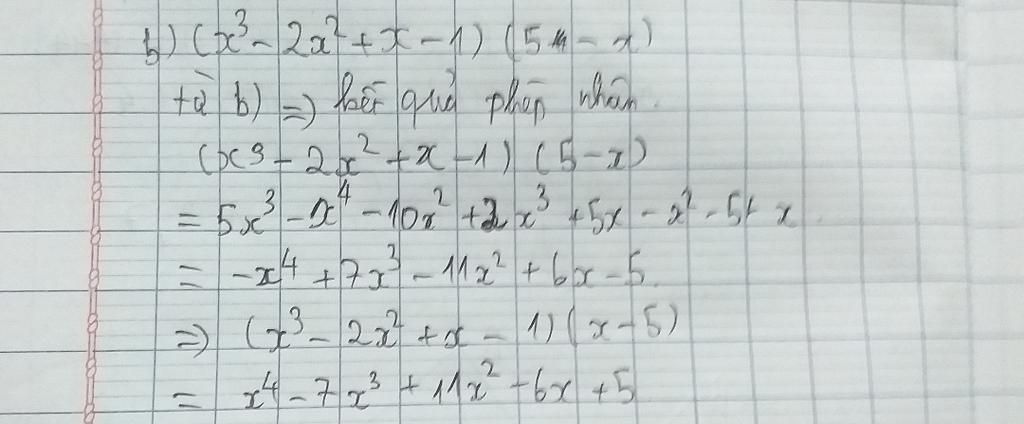 b) (x³ - 2x² + x - 1) (5 - x)
từ b) => kết quả phép nhân
(x³ - 2x² + x - 1) (5 - x)
= 5x³ - x⁴ - 10x² + 2x³ + 5x - x² - 5 + x
= -x⁴ + 7x³ - 11x² + 6x - 5.
=> (x³ - 2x² + x - 1) (x - 5)
= x⁴ - 7x³ + 11x² - 6x + 5